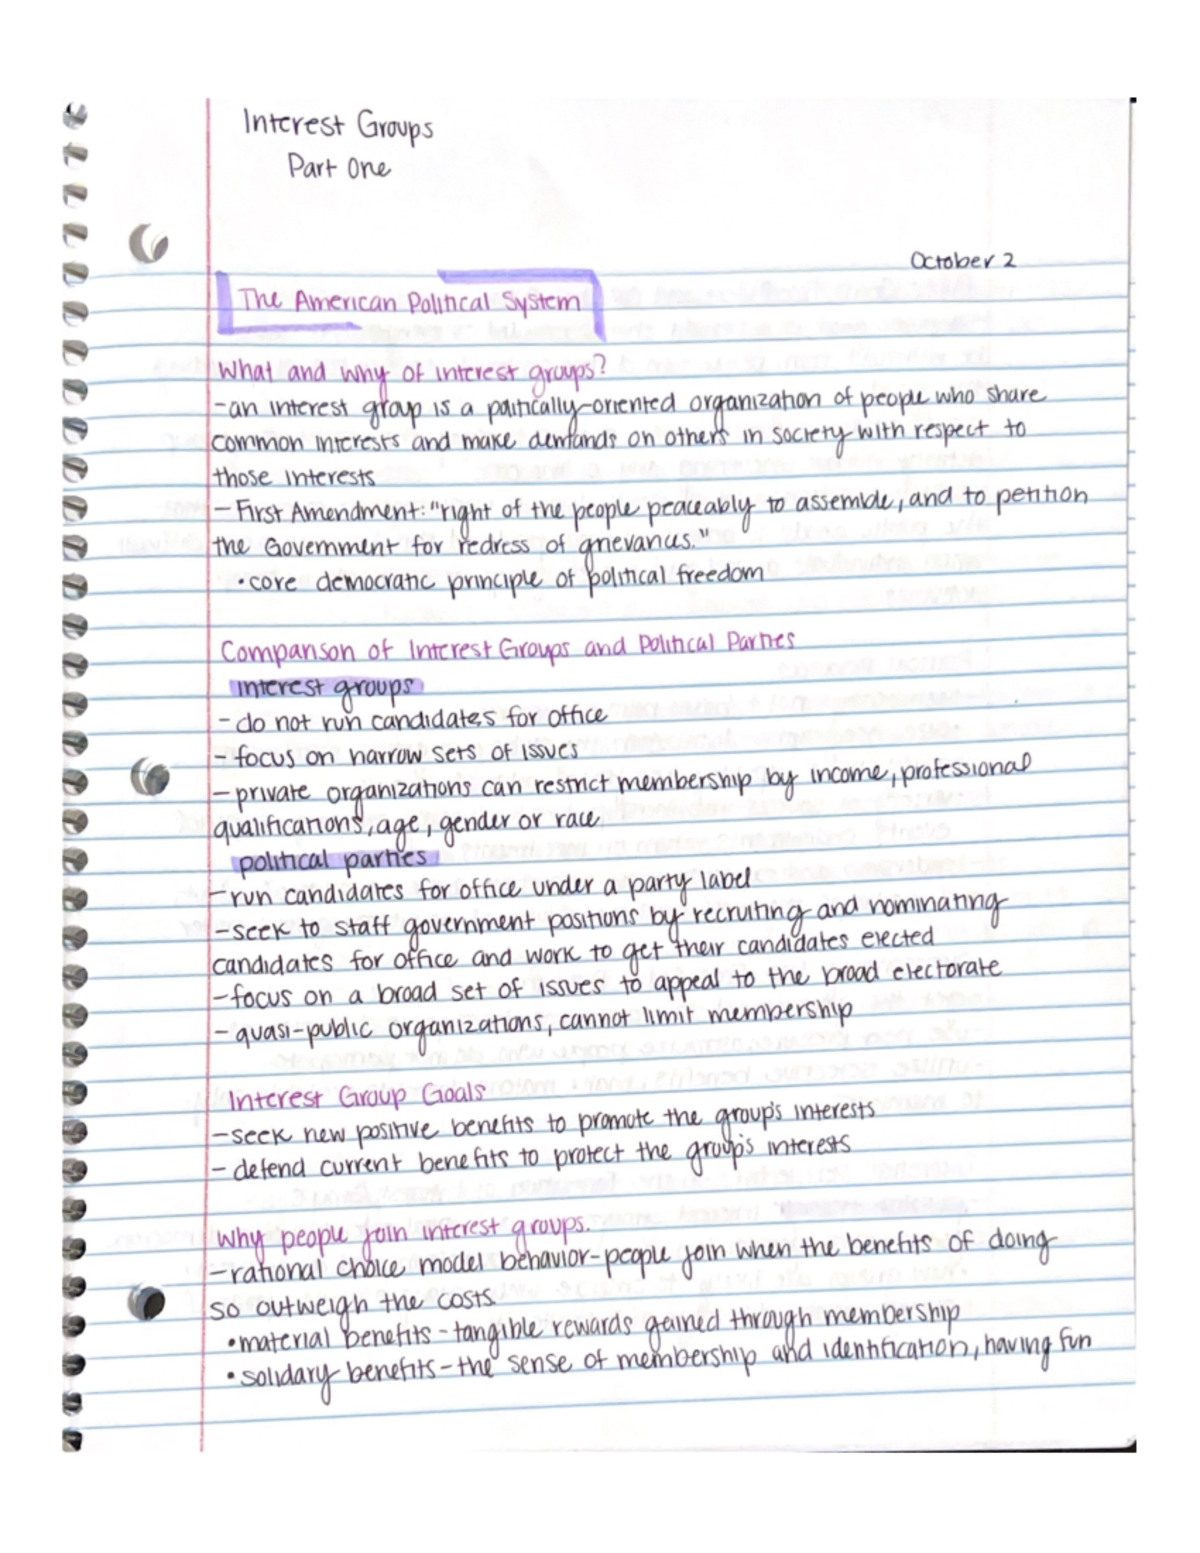 Interest Groups
Part One
October 2
The American Political System
What and why of interest groups?
-an interest group is a politically-oriented organization of people who share
common interests and make demands on others in society with respect to
those interests
- First Amendment: "right of the people peaceably to assemble, and to petition
the Government for redress of grievances."
• core democratic principle of political freedom
Comparison of Interest Groups and Political Parties
interest groups
- do not run candidates for office
- focus on narrow sets of issues
- private organizations can restrict membership by income, professional
qualifications, age, gender or race
political parties
-run candidates for office under a party label
-seek to staff government positions by recruiting and nominating
candidates for office and work to get their candidates elected
-focus on a broad set of issues to appeal to the broad electorate
- quasi-public organizations, cannot limit membership
Interest Group Goals
-seek new positive benefits to promote the group's interests
- defend current benefits to protect the group's interests
Why people join interest groups.
-rational choice model behavior-people join when the benefits of doing
so outweigh the costs
• material benefits - tangible rewards gained through membership
• solidary benefits - the sense of membership and identification, having fun